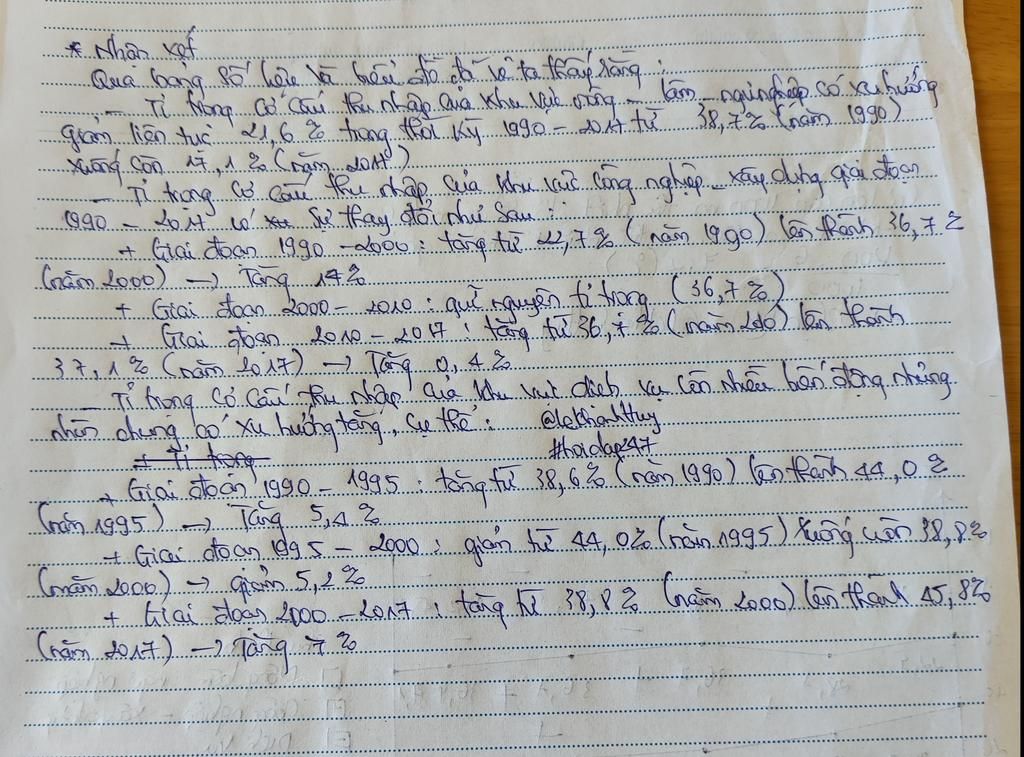 * Nhận xét
Qua bảng số liệu và biểu đồ đã vẽ ta thấy rằng :
– Tỉ trọng cơ cấu thu nhập của khu vực nông – lâm – ngư nghiệp có xu hướng
giảm liên tục 21,6 % trong thời kỳ 1990 – 2017 từ 38,7% (năm 1990)
xuống còn 17,1 % (năm 2017)
– Tỉ trọng cơ cấu thu nhập của khu vực công nghiệp – xây dựng giai đoạn
1990 – 2017 có sự thay đổi như sau :
+ Giai đoạn 1990 – 2000 : tăng từ 22,7 % (năm 1990) lên thành 36,7 %
(năm 2000) → Tăng 14%
+ Giai đoạn 2000 – 2010 : giữ nguyên tỉ trọng (36,7 %)
+ Giai đoạn 2010 – 2017 : tăng từ 36,7 % (năm 2010) lên thành
37,1 % (năm 2017) → Tăng 0,4 %
– Tỉ trọng cơ cấu thu nhập của khu vực dịch vụ còn nhiều biến động nhưng
nhìn chung có xu hướng tăng, cụ thể : @lekhanhHuy
+ Tỉ trọng #hoidap247
+ Giai đoạn 1990 – 1995 : tăng từ 38,6 % (năm 1990) lên thành 44,0 %
(năm 1995) → Tăng 5,4 %
+ Giai đoạn 1995 – 2000 : giảm từ 44,0% (năm 1995) xuống còn 38,8%
(năm 2000) → giảm 5,2 %
+ Giai đoạn 2000 – 2017 : tăng từ 38,8% (năm 2000) lên thành 45,8%
(năm 2017) → Tăng 7 %